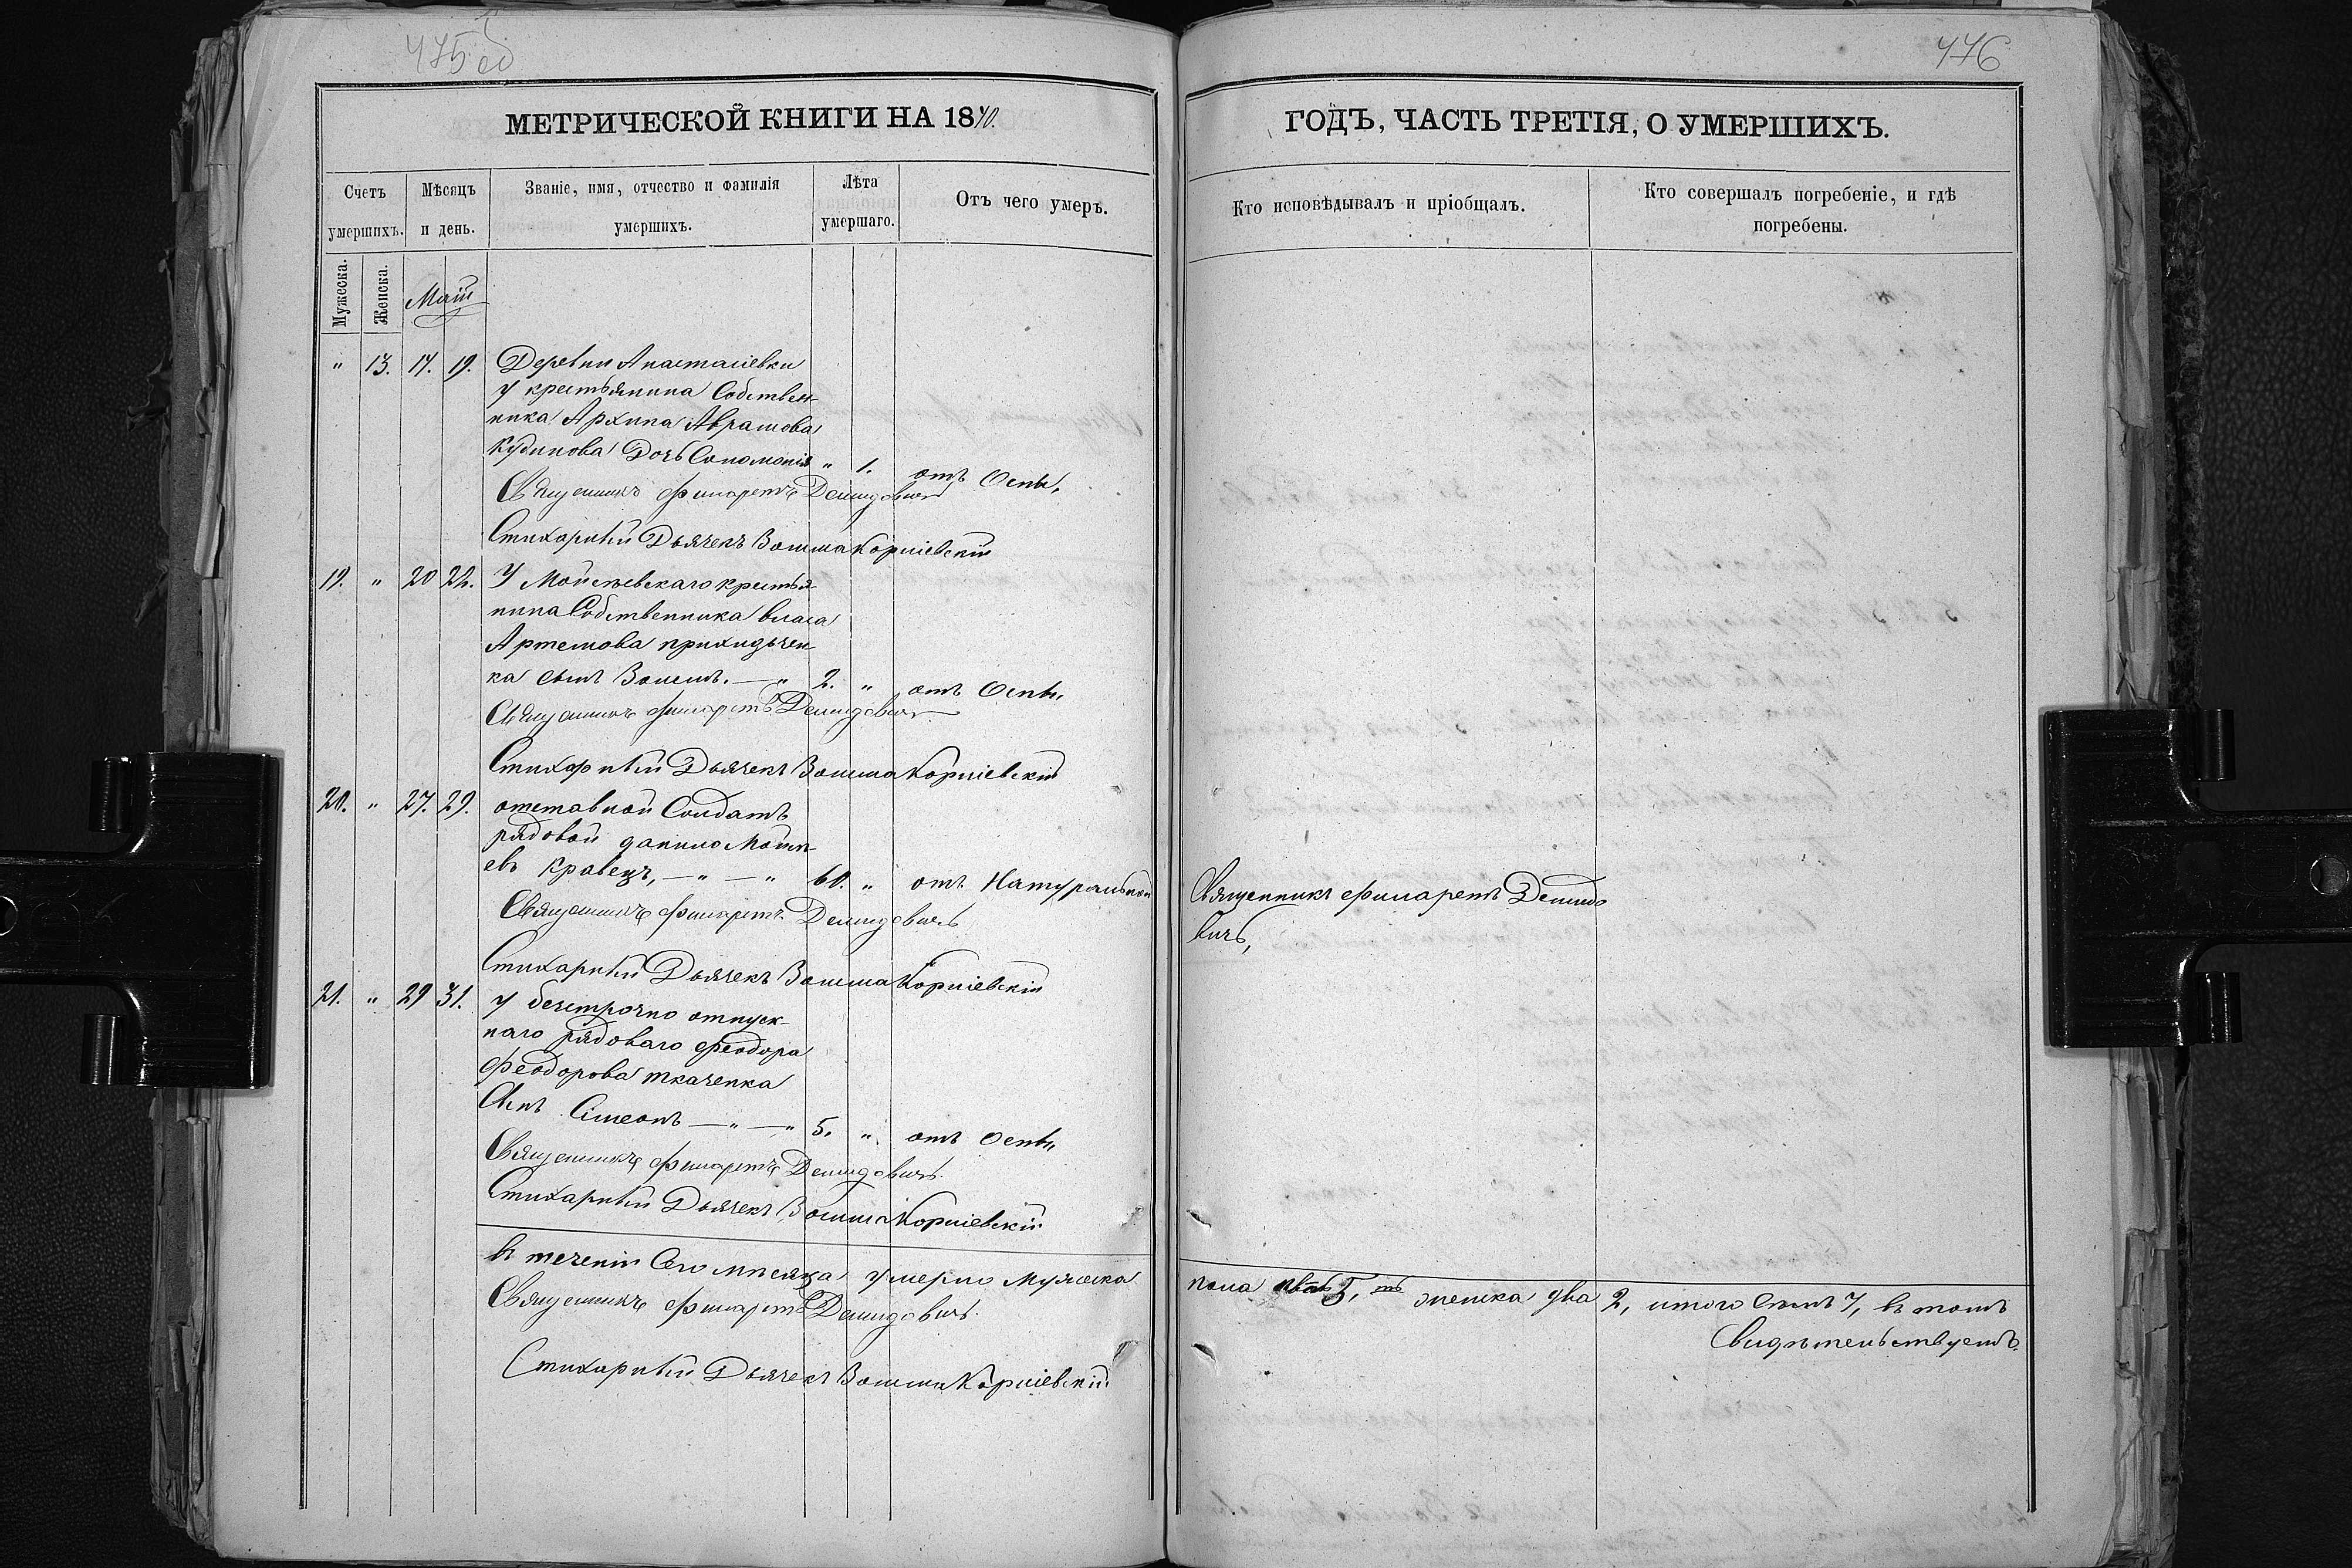 475 об
476
МЕТРИЧЕСКОЙ КНИГИ НА 1870.
ГОДЪ, ЧАСТЬ ТРЕТІЯ, О УМЕРШИХЪ.
Счетъ умершихъ.
Мѣсяцъ и день.
Званіе, имя, отчество и фамилія умершихъ.
Лѣта умершаго.
Отъ чего умеръ.
Кто исповѣдывалъ и пріобщалъ.
Кто совершалъ погребеніе, и гдѣ погребены.
Мужеска.
Женска.
Маій
" 13. 17. 19. Деревни Анастасіевки
у крестьянина Собствен-
ника Архипа Аврамова
Кудинова Дочь Соломонія " 1. отъ Оспы,
Священникъ Филаретъ Демидовичъ
Стихарный Дьячекъ Зосима Корніевскій
19. " 20 22. У Мойсѣевскаго крестья-
нина Собственника Власа
Артемова приходьчен-
ка сынъ . — " 2. " отъ Оспы,
Священникъ Филаретъ Демидовичъ
Стихарный Дьячекъ Зосима Корніевскій
20. " 27. 29. отставной Солдатъ
рядовой данило Мойсѣ-
евъ Кравецъ, — " — " 60. " отъ Натуральной
Священникъ Филаретъ Демидо
вичъ,
Священникъ Филаретъ Демидовичъ
Стихарный Дьячекъ Зосима Корніевскій
21. " 29 31. у безсрочно отпуск-
наго рядоваго Феодора
Феодорова ткаченка
Сынъ Сімеонъ — " — " 5. " отъ Оспы,
Священникъ Филаретъ Демидовичъ
Стихарный Дьячекъ Зосима Корніевскій
въ теченіи Сего мѣсяца умерло мужеска
пола пять 5, женска два 2, итого Семъ 7, въ томъ
Свидѣтельствуемъ.
Священникъ Филаретъ Демидовичъ
Стихарный Дьячекъ Зосима Корніевскій